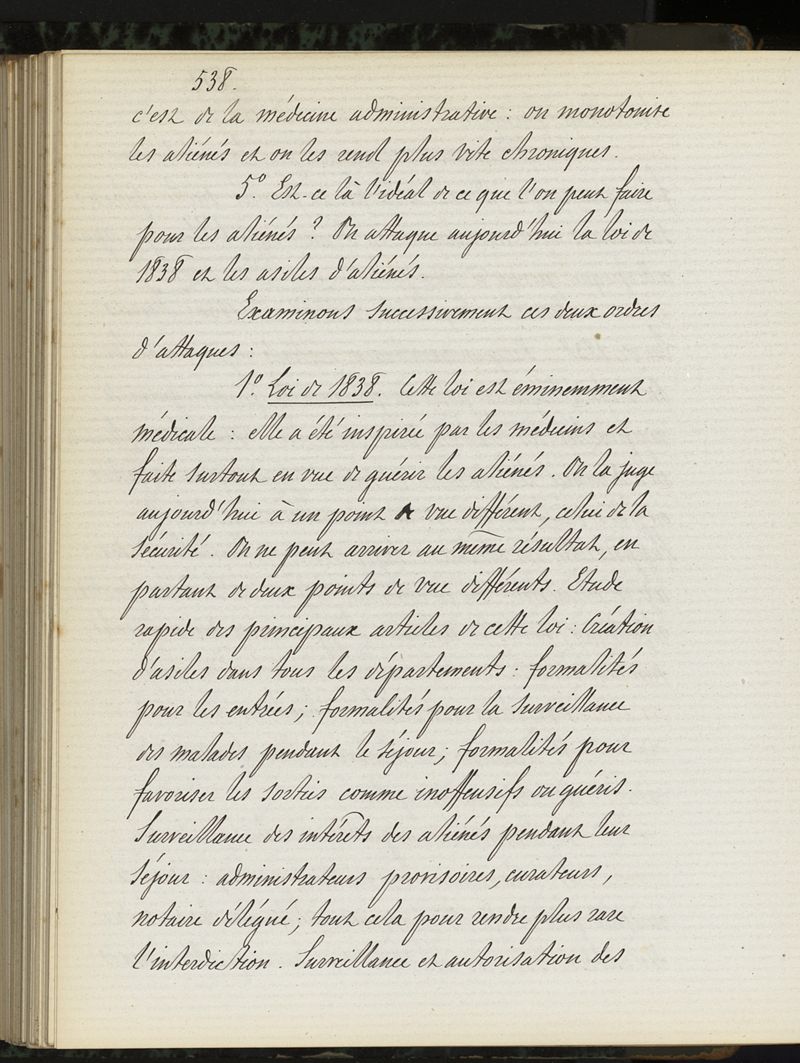 538.
c'est de la médecine administrative : on monotonise
les aliénés et on les rend plus vite chroniques.
5° Est-ce là l'idéal de ce que l'on peut faire
pour les aliénés ? On attaque aujourd'hui la loi de
1838 et les asiles d'aliénés.
Examinons successivement ces deux ordres
d'attaques :
1° Loi de 1838. Cette loi est éminemment
médicale : elle a été inspirée par les médecins et
faite surtout en vue de guérir les aliénés. On la juge
aujourd'hui à un point de vue différent, celui de la
sécurité. On ne peut arriver au même résultat, en
partant de deux points de vue différents. Etude
rapide des principaux articles de cette loi : Création
d'asiles dans tous les départements : formalités
pour les entrées ; formalités pour la surveillance
des malades pendant le séjour ; formalités pour
favoriser les sorties comme inoffensifs ou guéris.
Surveillance des intérêts des aliénés pendant leur
séjour : administrateurs provisoires, curateurs,
notaire délégué ; tout cela pour rendre plus rare
l'interdiction. Surveillance et autorisation des